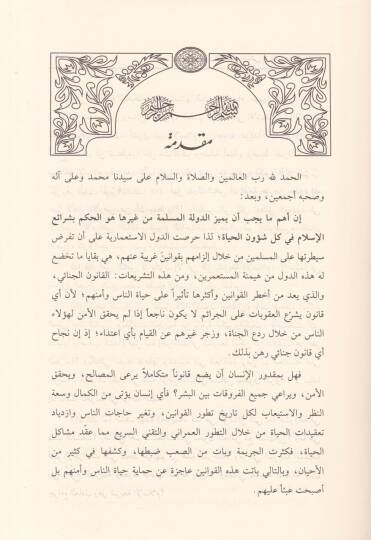 بسم الله الرحمن الرحيم
مقدمة
الحمد لله رب العالمين والصلاة والسلام على سيدنا محمد وعلى آله
وصحبه أجمعين، وبعد:
إن أهم ما يجب أن يميز الدولة المسلمة من غيرها هو الحكم بشرائع
الإسلام في كل شؤون الحياة؛ لذا حرصت الدول الاستعمارية على أن تفرض
سيطرتها على المسلمين من خلال إلزامهم بقوانين غريبة عنهم، هي بقايا ما تخضع
له هذه الدول من هيمنة المستعمرين، ومن هذه التشريعات: القانون الجنائي،
والذي يعد من أخطر القوانين وأكثرها تأثيراً على حياة الناس وأمنهم؛ لأن أي
قانون يشرّع العقوبات على الجرائم لا يكون ناجعاً إذا لم يحقق الأمن لهؤلاء
الناس من خلال ردع الجناة، وزجر غيرهم عن القيام بأي اعتداء؛ إذ إن نجاح
أي قانون جنائي رهن بذلك.
فهل بمقدور الإنسان أن يضع قانوناً متكاملاً يرعى المصالح، ويحقق
الأمن، ويراعي جميع الفروقات بين البشر؟ فأي إنسان يؤتى من الكمال وسعة
النظر والاستيعاب لكل تاريخ تطور القوانين، وتغير حاجات الناس وازدياد
تعقيدات الحياة من خلال التطور العمراني والتقني السريع مما عقّد مشاكل
الحياة، فكثرت الجريمة وبات من الصعب ضبطها، وكشفها في كثير من
الأحيان، وبالتالي باتت هذه القوانين عاجزة عن حماية حياة الناس وأمنهم بل
أصبحت عبئاً عليهم.